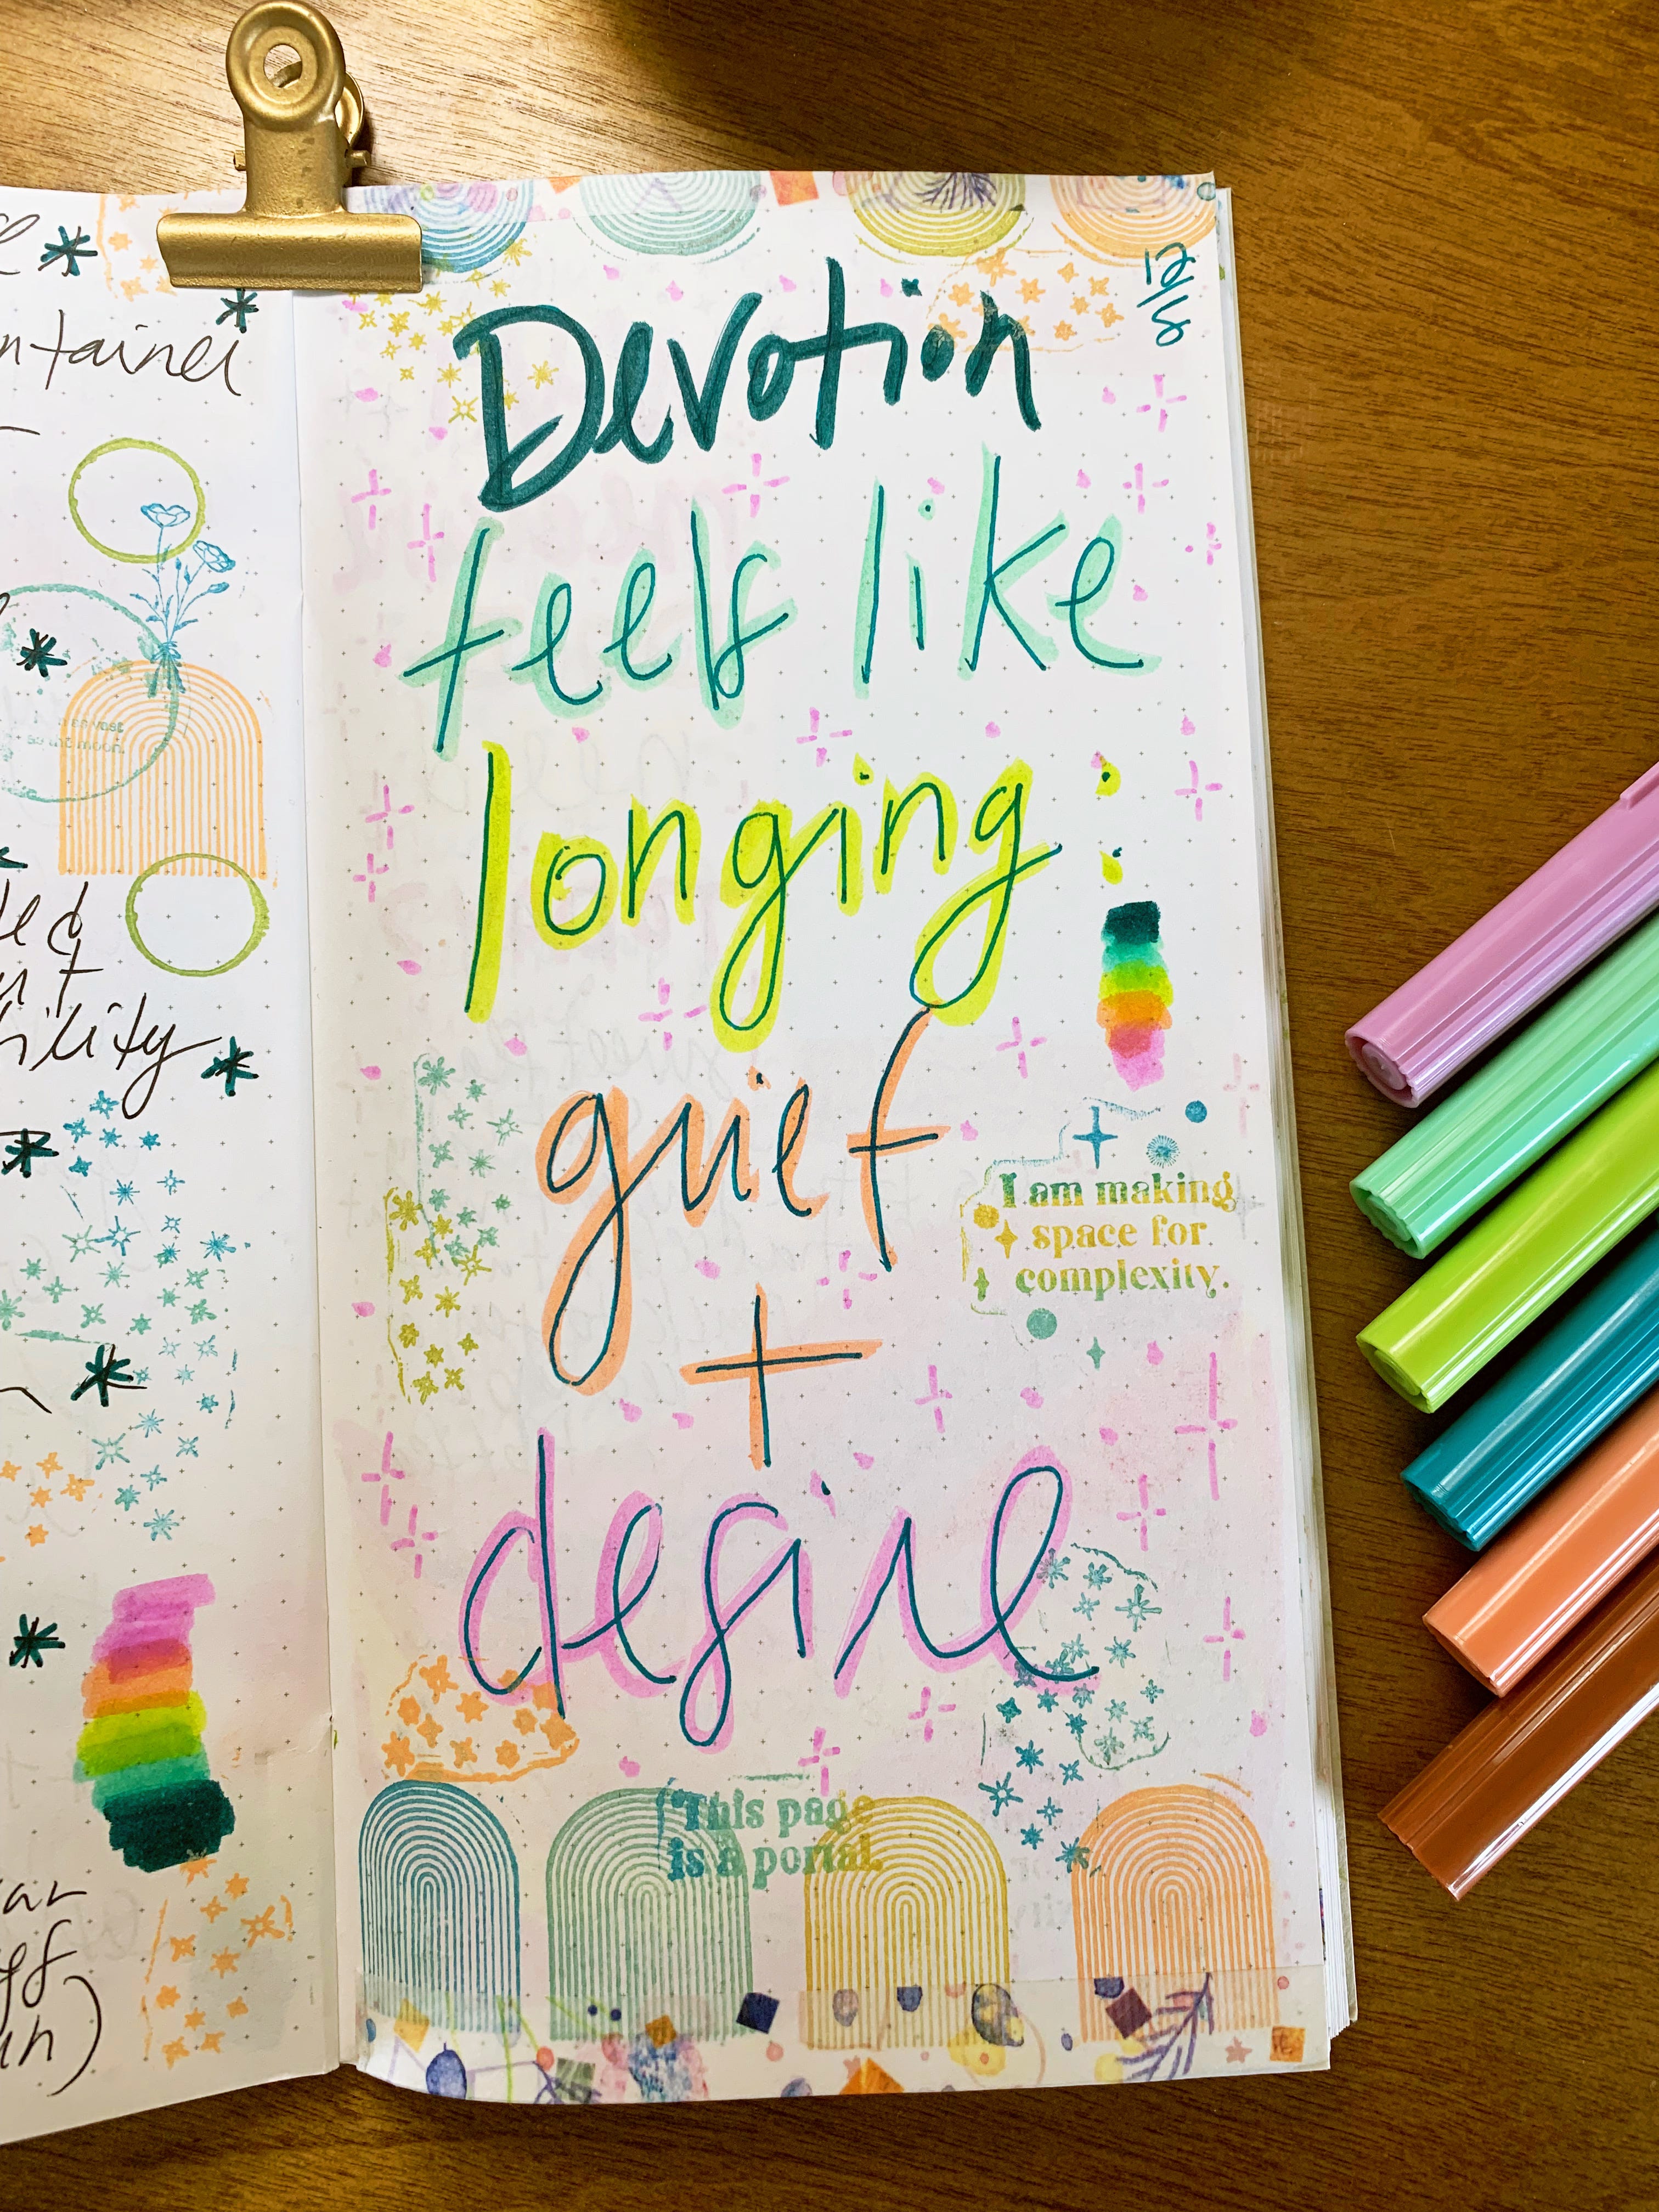 ntainer
as vast
moon.
ility
12/8
Devotion
feels like
longing :
grief
+
desire
I am making
space for
complexity.
This page
is a portal.